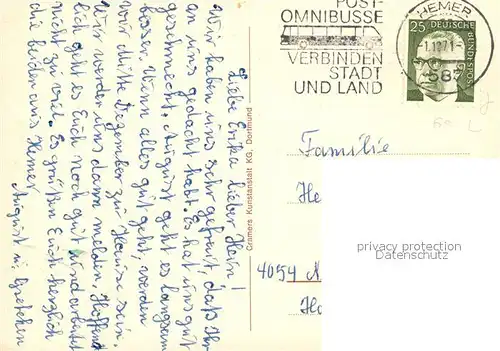 Liebe Erika lieber Hein!
Wir haben uns sehr gefreut, daß Ihr
an uns gedacht habt. Es hat uns gut
geschmeckt. August geht es langsam
besser. Wenn alles gut geht, werden
wir Mitte Dezember zu Hause sein.
Wir werden uns dann melden. Hoffent
lich geht es Euch noch gut und arbeitet
nicht zu viel. Es grüßen Euch herzlich
die beiden aus Hemer
August u. Gretchen
Cramers Kunstanstalt KG, Dortmund
POST-
OMNIBUSSE
VERBINDEN
STADT
UND LAND
HEMER
587
25
DEUTSCHE
BUNDESPOST
Familie
He
privacy protection
VERONIKI.COM
4054 N